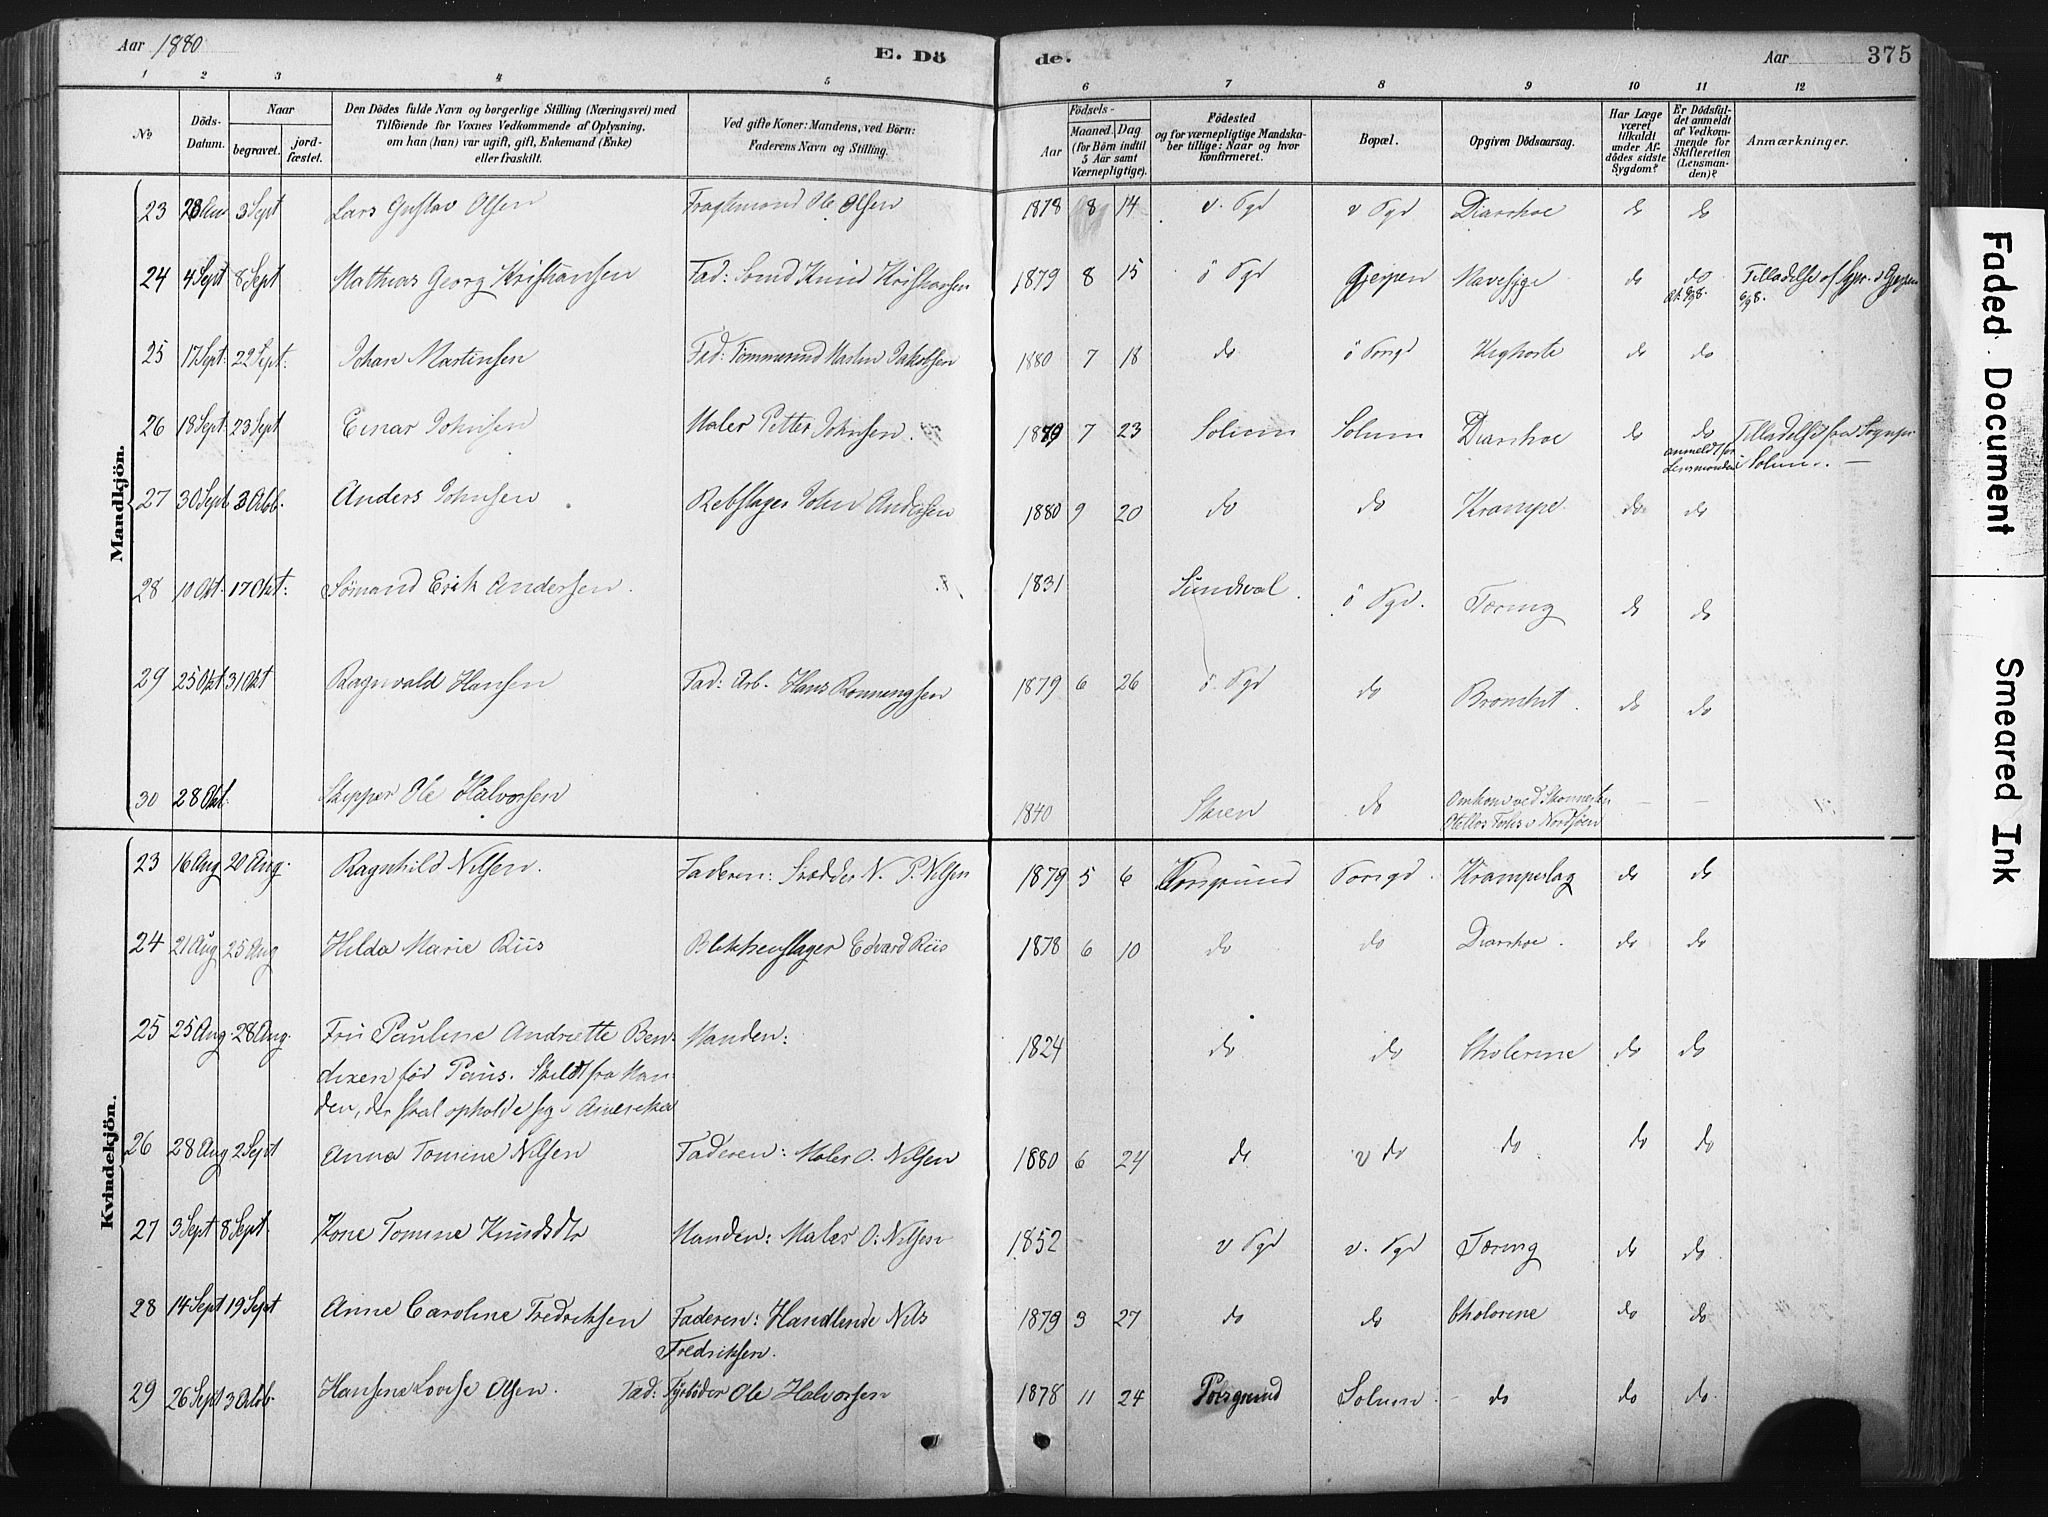 Aar 1880
E. Dö
de.
Aar
375
1 2 3 4 5 6 7 8 9 10 11 12
No
Döds-
Datum.
Naar
begravet.
jord-
fæstet.
Den Dödes fulde Navn og borgerlige Stilling (Næringsvei) med
Tilföiende for Voxnes Vedkommende af Oplysning,
om han (hun) var ugift, gift, Enkemand (Enke)
eller fraskilt.
Ved gifte Koner: Mandens, ved Börn:
Faderens Navn og Stilling.
Födsels-
Aar
Maaned. Dag
(for Börn indtil
5 Aar samt
Værnepligtige).
Födested
og for værnepligtige Mandska-
ber tillige: Naar og hvor
konfirmeret.
Bopæl.
Opgiven Dödsaarsag.
Har Læge
været
tilkaldt
under Af-
dödes sidste
Sygdom?
Er Dödsfal-
det anmeldt
af Vedkom-
mende for
Skifteretten
(Lensman-
den)?
Anmærkninger.
Mandkjön.
23 3 Sept Lars Gustav Olsen Ole Olsen 1878 8 14 v. Pgd v Pgd Diarrhoe do do
24 4 Sept 8 Sept Mathias Georg Kristiansen Fad: Knud Kristiansen 1879 8 15 ö Pgd Gjerpen Mavesyge do do Tilladelse af
25 17 Sept. 22 Sept. Johan Martinsen Fad: Tømmermand Martin Jakobsen 1880 7 18 do ö Porsgd Kighoste do do
26 18 Sept. 23 Sept Einar Johnsen Maler Petter Johnsen. 1879 7 23 Solum Solum Diarrhoe do do Tilladelse fra Sognepr
anmeldt for
Lensmanden i Solum. —
27 30 Sept 3 Oktb. Anders Johnsen Rebslager John Andersen 1880 9 20 do do Krampe do do
28 10 Okt. 17 Okt. Sömand Erik Andersen. 1831 Sundsval. ö Pgd. Tæring do do
29 25 Okt 31 Okt Ragnvald Hansen Fad: Arb. Hans Rønningsen 1879 6 26 ö. Pgd do Bronchit. do do
30 28 Okt. Skipper Ole Halvorsen 1840 Skien do Omkom ved Skonnerten
Otellos Forlis i Nordsjöen — —
Kvindekjön.
23 16 Aug 20 Aug. Ragnhild Nilsen. Faderen: N. P. Nilsen 1879 5 6 Porsgrund Porsgd. Krampeslag do do
24 21 Aug 25 Aug Hilda Marie Riis Blikkenslager Edvard Riis 1878 6 10 do do Diarrhoe. do do
25 25 Aug. 28 Aug. Fru Pauline Andriette Ben-
dixen föd Paus. Skildt fra Man-
den, der skal opholde sig i Amerika Manden: 1824 do do Cholerine do do
26 28 Aug 2 Sept Anna Tomine Nilsen Faderen: Maler O. Nilsen 1880 6 24 do v do do do do
27 3 Sept 8 Sept. Kone Tomine Knudsdtr Manden: Maler O. Nilsen 1852 v Pgd v. Pgd Tæring do do
28 14 Sept 19 Sept Anne Caroline Fredriksen Faderen: Handlende Nils
Fredriksen. 1879 3 27 do do Cholerine do do
29 26 Sept 3 Oktb. Hansine Lovise Olsen. Fad: Fyrböder Ole Halvorsen 1878 11 24 Porsgrund Solum do do do
Faded Document
Smeared Ink